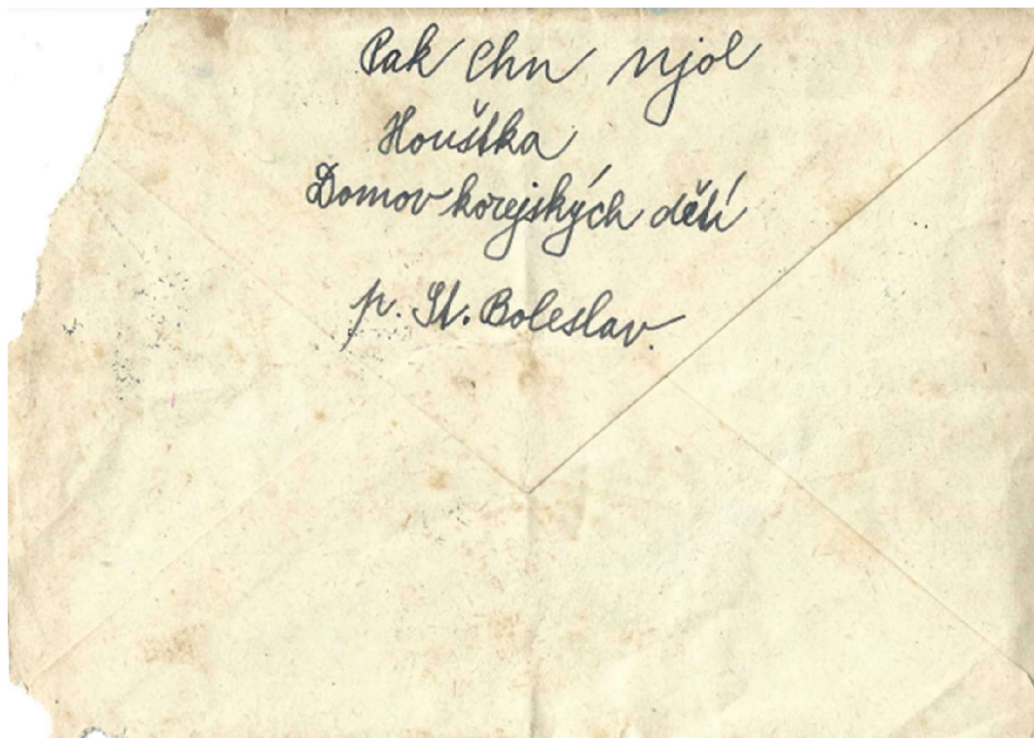 Pak Chn Njol
Houštka
Domov korejských dětí
p. St. Boleslav.